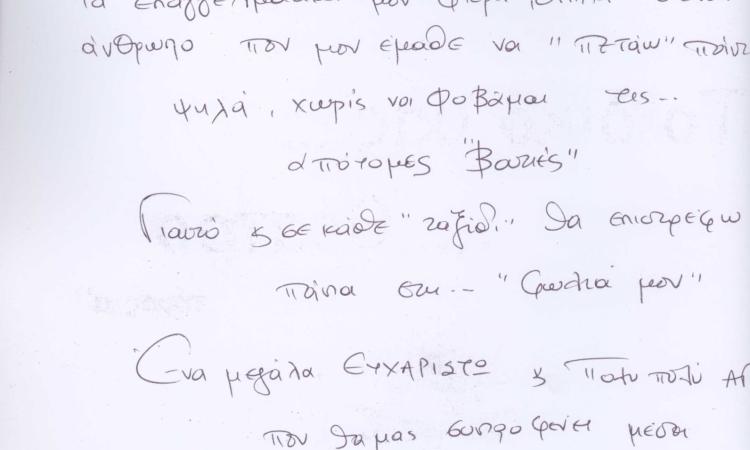 τα επαγγελματικά μου
άνθρωπο που μου έμαθε να "πετάω" πάντ
ψηλά, χωρίς να φοβάμαι τις...
απότομες "βουτιές"
Γιαυτό & σε κάθε "ταξίδι" θα επιστρέφω
πάντα στη... "φωλιά μου"
Ένα μεγάλο ΕΥΧΑΡΙΣΤΩ & πάρα πολύ ΑΓ
που θα μας συντροφεύει μέσα